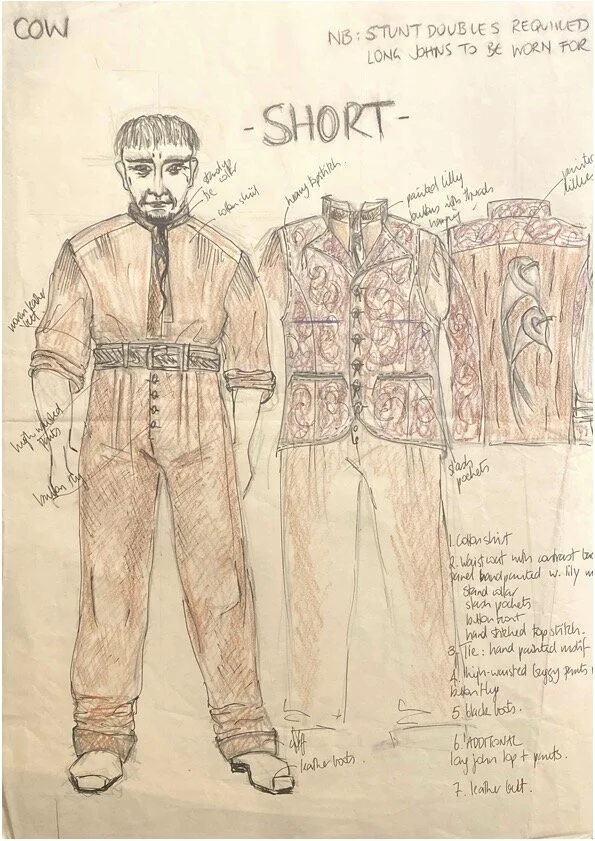 COW
NB: STUNT DOUBLES REQUIRED
LONG JOHNS TO BE WORN FOR
-SHORT-
heavy topstitch.
painted lilly
buttons with threads
hanging
cotton shirt
worn leather
belt
high waisted
pants
button fly
slash
pockets
cuff
leather boots.
1. Cotton shirt
2. Waistcoat with contrast
panel handpainted w. lily
stand collar
slash pockets
button front
hand stitched top stitch.
3. Tie: hand painted motif
4. High-waisted baggy pants
button fly
5. black boots.
6. 'ADDITIONAL
long john top + pants.
7. leather belt.